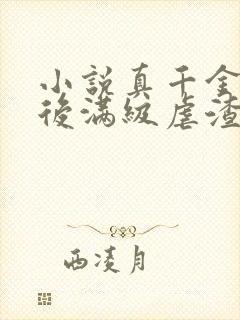 小說真千金
後滿級虐渣
西淩月